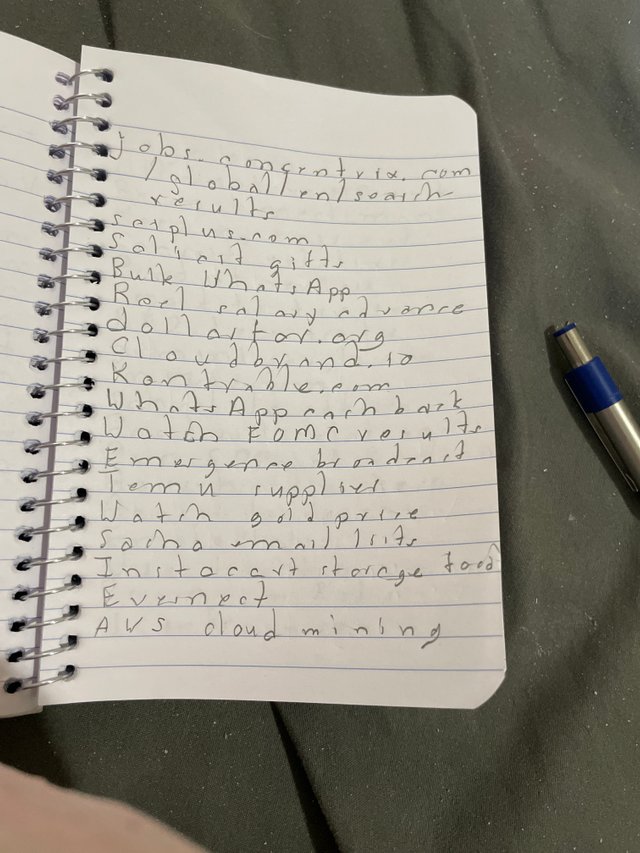 jobs.concentrix.com
/global/en/search-
results
setplus.com
gifts
Bulk WhatsApp
salary advance
dollarfor.org
Cloudbrand.io
Kontrable.com
WhatsApp cash back
Watch FOMC results
Emergence broadcast
Temu supplier
Watch gold price
email lists
Instacart storage food
AWS cloud mining